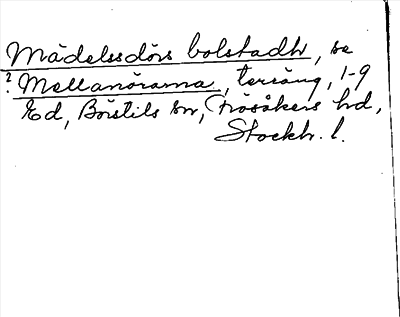 Mädelssdörs bolstadhr, se
? Mellanörarna, terräng, 1-9
Ed, Börstils sn, Frösåkers hd,
Stockh. l.